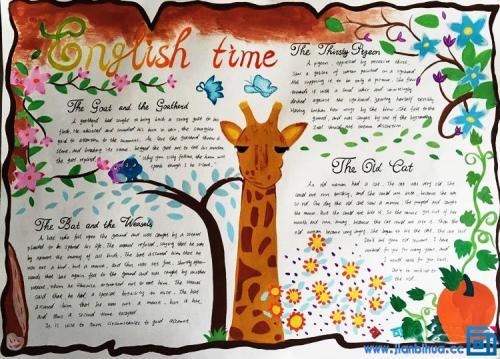 English time
The Thirsty Pigeon
A pigeon, oppressed by excessive thirst,
saw a goblet of water painted on a signboard.
Not supposing it to be only a picture, she flew
towards it with a loud whir and unwittingly
dashed against the signboard, jarring herself terribly.
Having broken her wings by the blow, she fell to the
ground, and was caught by one of the bystanders.
Zeal should not outrun discretion.
The Goat and the Goatherd
A goatherd had sought to bring back a stray goat to his
flock. He whistled and sounded his horn in vain; the straggler
paid no attention to the summons. At last the goatherd threw a
stone, and breaking its horn, begged the goat not to tell his master.
the goat replied, "Why, you silly fellow, the horn will
speak though I be silent."
The Old Cat
An old woman had a cat. The cat was very old. She
could not run quickly, and she could not bite, because she was
so old. One day the old cat saw a mouse; she jumped and caught
the mouse. But she could not bite it. So the mouse got out of her
mouth and ran away, because the cat could not bite it. Then the
old woman became very angry. She began to hit the cat. The cat said,
Don't hit your old servant. I have
worked for you for many years. And I
would work for you still,
Don't be unkind to
the old
The Bat and the Weasels
A bat who fell upon the ground and was caught by a weasel
pleaded to be spared his life. The weasel refused, saying that he was
by nature the enemy of all birds. The bat assured him that he
was not a bird, but a mouse, and thus was set free. Shortly after-
wards the bat again fell to the ground and was caught by another
weasel, whom he likewise entreated not to eat him. The weasel
said that he had a special hostility to mice. The bat
assured him that he was not a mouse, but a bat,
and thus a second time escaped.
It is wise to turn circumstances to good account.
www.jianbihua.cc